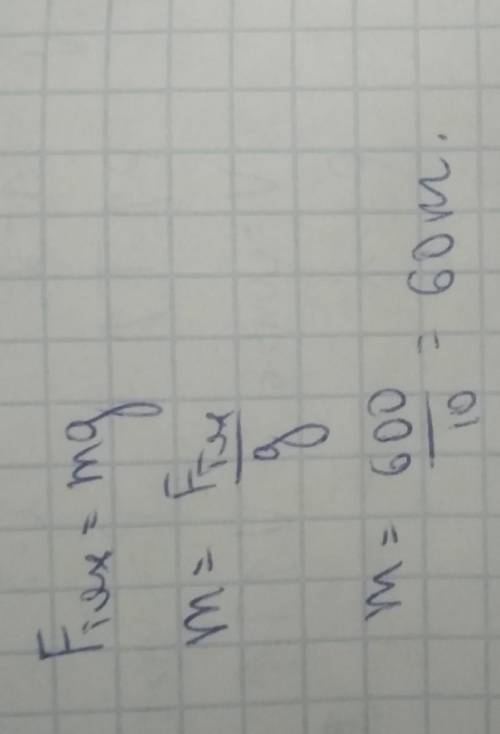 Fтях = mg
m = Fтях / g
m = 600 / 10 = 60 м.